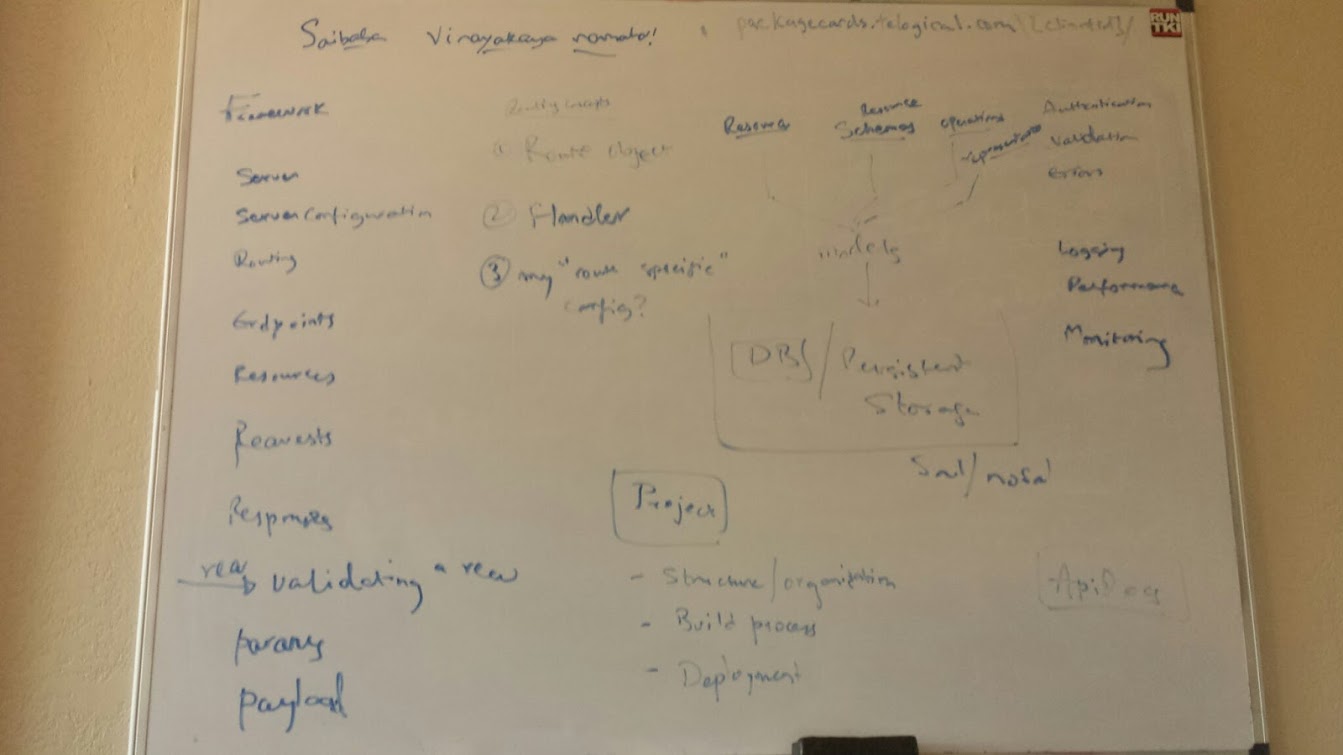 Saibaba Vinayakaya namaha!
packagecards.telogical.com/[clientid]/
RUN
TKI
Framework
Server
Server Configuration
Routing
Endpoints
Resources
Requests
Responses
req validating a req
params
payload
Routing concepts
① Route object
② Handler
③ my "route specific"
config?
Resource
Resource
Schemas
operations
representations
models
[DB] / Persistent
Storage
Sql/nosql
Authentication
Validation
Errors
Logging
Performance
Monitoring
Project
- Structure/organization
- Build process
- Deployment
Api Docs